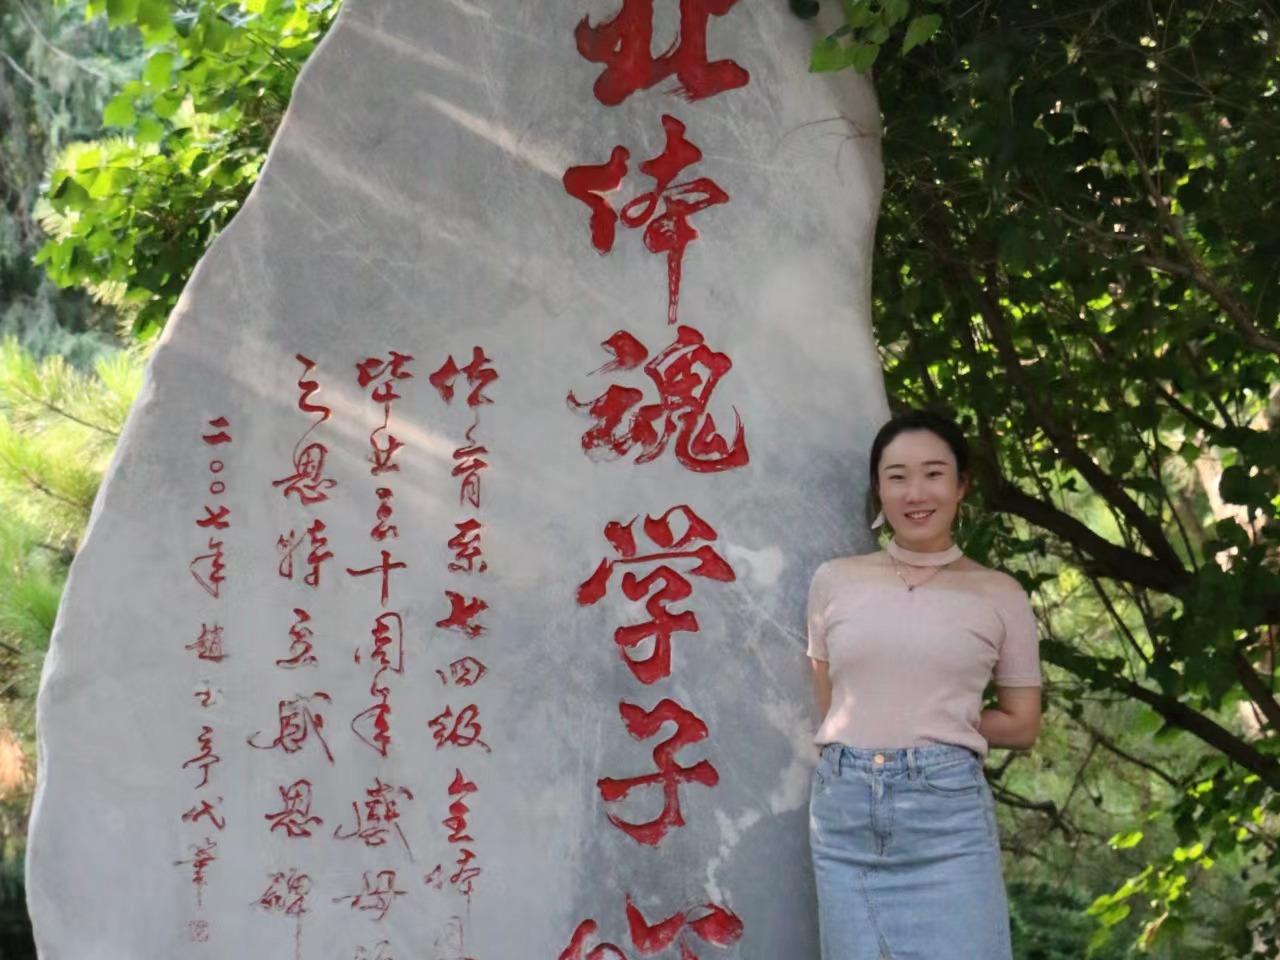 北体魂学子
体育系七四级全体
毕业三十周年感母
之恩特立感恩碑
二〇〇七年 赵玉亭代筆